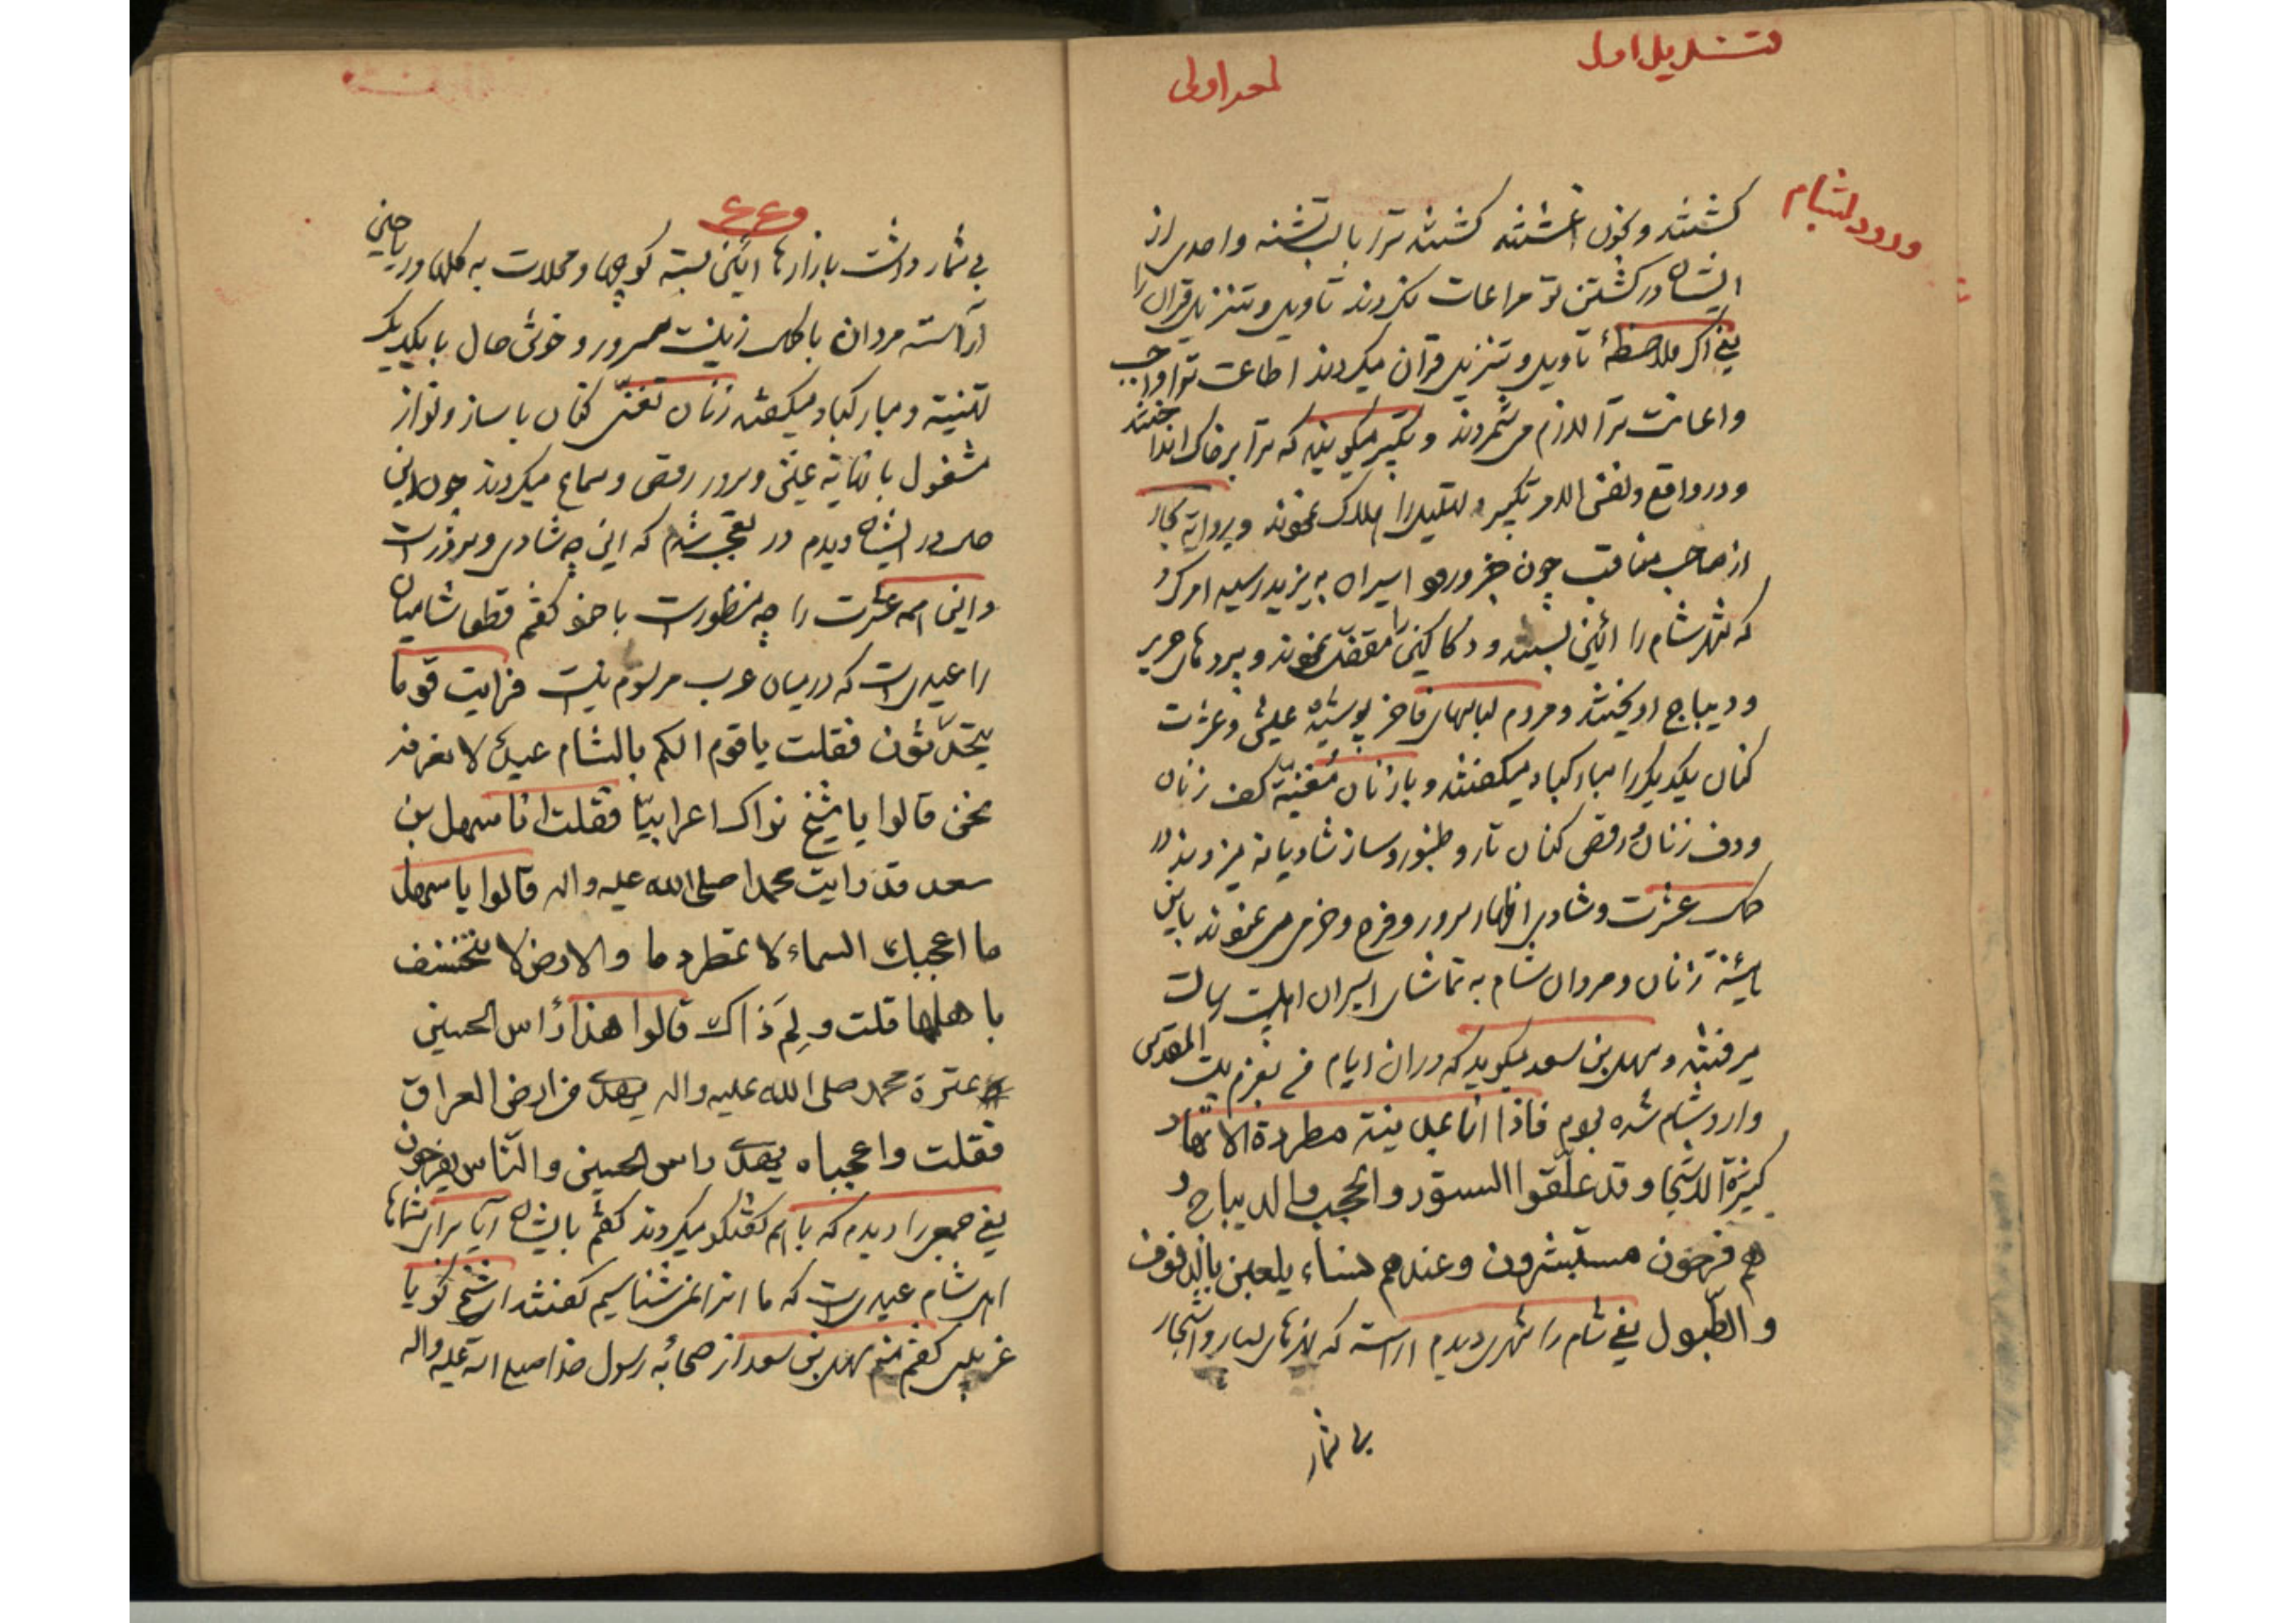 قندیل اول
لمعه اولی
ورود بشام
کشتند و بخون اغشتند کشتند ترا با لب تشنه و احدی از
ایشان در کشتن تو مراعات نکردند تاویل و تنزیل قران را
یعنی اگر ملاحظهٔ تاویل و تنزیل قران میکردند اطاعت تو را واجب
و اعانت ترا لازم می شمردند و تکبیر میکویند که ترا بر خاک انداختند
و در واقع و نفس الامر تکبیر و تهلیل را هلاک نمودند و بروایة بحار
از صاحب مناقب چون خبر ورود اسیران به یزید رسید امر کرد
که شهر شام را ائین بستند و دکاکین را مقفل نمودند و پرده های حریر
و دیباج اویختند و مردم لباسهای فاخر پوشیده عیش و عشرت
کنان یکدیکر را مبارکباد میکفتند و با زنان مغنیّه کف زنان
و دف زنان و رقص کنان تار و طنبور و ساز شادیانه میزدند و در
کمال عشرت و شادی اظهار سرور و فرح و خرمی می نمودند باین
هیئة زنان و مردان شام به تماشای اسیران اهلبیت رسالت
میرفتند و سهل بن سعد میکوید که در ان ایام من بعزم بیت المقدس
وارد شام شده بودم فاذا انا بمدینة مطردة الانهار
کثیرة الاشجار و قد علّقوا الستور و الحجب و الدیباج و
هم فرحون مستبشرون و عندهم نساء یلعبن بالدفوف
و الطبول یعنی شام را شهری دیدم اراسته که نهرهای بسار و اشجار
بی شمار
۴۴۶
بی شمار داشت بازارها ائین بسته کوچها و محلات به کلها و ریاحین
آراسته مردان با کمال زینت مسرور و خوش حال با یکدیکر
تهنیة و مبارکباد میکفتند زنان تغنّی کنان با ساز و نواز
مشغول با نهایة عیش و سرور رقص و سماع میکردند چون این
حال در ایشان دیدم در تعجب شدم که این چه شادی و سرور است
و این همه عشرت را چه منظور است با خود کفتم قطعا شامیان
را عیدی است که در میان عرب مرسوم نیست فرایت قوما
یتحدّثون فقلت یا قوم الکم بالشام عید لا نعرفه
نحن قالوا یا شیخ نراک اعرابیّا فقلت انا سهل بن
سعد قد رایت محمدا صلی الله علیه و اله قالوا یا سهل
ما اعجبک السماء لا تمطر دما و الارض لا تنخسف
باهلها قلت و لِمَ ذاک قالوا هذا رأس الحسین
عترة محمد صلی الله علیه و اله یهدی من ارض العراق
فقلت واعجباه یهدی راس الحسین و النّاس یفرحون
یعنی جمعی را دیدم که با هم کفتکو میکردند کفتم با ایشان آیا برای شماها
اهل شام عیدی است که ما انرا نمی شناسیم کفتند ای شیخ کویا
غریبی کفتم منم سهل بن سعد از صحابه رسول خدا صلی الله علیه و اله